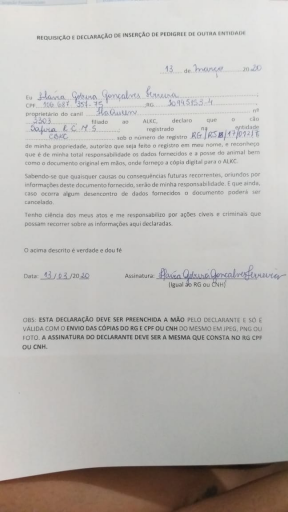 REQUISIÇÃO E DECLARAÇÃO DE INSERÇÃO DE PEDIGREE DE OUTRA ENTIDADE
13 de março de 2020
Eu Flavia Gonçalves Ferreira
CPF RG
proprietário do canil nº
3503 filiado ao ALKC, declaro que o cão
Safira registrado na entidade
CBKC sob o número de registro
de minha propriedade, autorizo que seja feito o registro em meu nome, e reconheço
que é de minha total responsabilidade os dados fornecidos e a posse do animal bem
como o documento original em mãos, onde forneço a cópia digital para o ALKC.
Sabendo-se que quaisquer causas ou consequências futuras recorrentes, oriundos por
informações deste documento fornecido, serão de minha responsabilidade. E que ainda,
caso ocorra algum desencontro de dados fornecidos o documento poderá ser
cancelado.
Tenho ciência dos meus atos e me responsabilizo por ações civeis e criminais que
possam recorrer sobre as informações aqui declaradas.
O acima descrito é verdade e dou fé
Data: 13/03/2020 Assinatura: Gonçalves Ferreira
(Igual do RG ou CNH)
OBS: ESTA DECLARAÇÃO DEVE SER PREENCHIDA A MÃO PELO DECLARANTE E SÓ É
VALIDA COM O ENVIO DAS CÓPIAS DO RG E CPF OU CNH DO MESMO EM JPEG, PNG OU
FOTO. A ASSINATURA DO DECLARANTE DEVE SER A MESMA QUE CONSTA NO RG CPF
OU CNH.